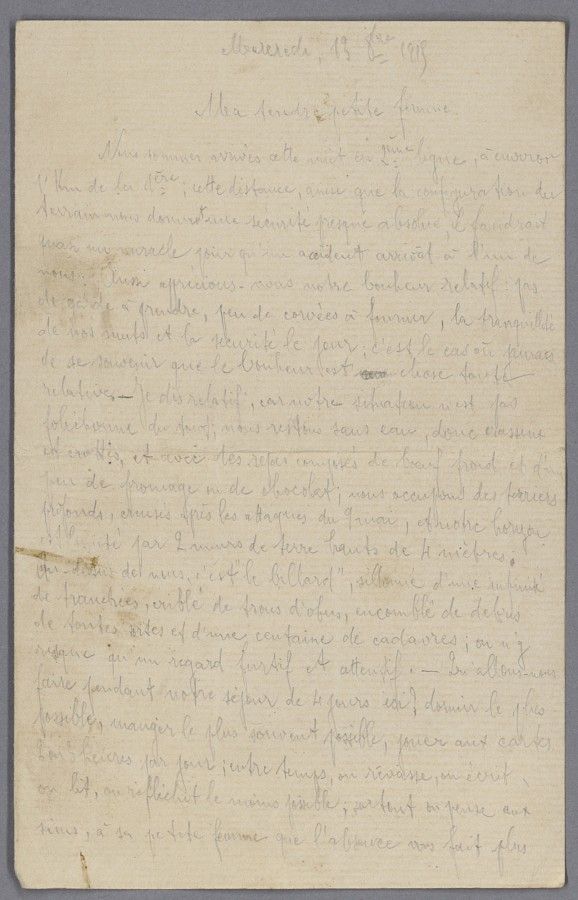 Mercredi, 13 8bre 1915
Ma tendre petite femme
Nous sommes arrivés cette nuit en 2ème ligne, à environ
1 km de la 1ère ; cette distance, ainsi que la configuration du
terrain nous donnent une sécurité presque absolue, il faudrait
un miracle pour qu'un accident arrivât à l'un de
nous. Aussi apprécions-nous notre bonheur relatif : pas
de garde à prendre, peu de corvées à fournir, la tranquillité
de nos nuits et la sécurité le jour, c'est le cas où jamais
de se souvenir que le bonheur est chose toute
relative. — Je dis relatif, car notre situation n'est pas
folichonne du tout ; nous restons sans eau, donc crasseux
et crottés, et avec des repas composés de bœuf froid et d'un
peu de fromage ou de chocolat ; nous occupons des terriers
profonds, creusés après les attaques du 9 mai, et notre horizon
est limité par 2 murs de terre hauts de 4 mètres ;
au-dessus de nous, c'est le billard", sillonné d'une infinité
de tranchées, criblé de trous d'obus, encombré de débris
de toutes sortes et d'une centaine de cadavres ; on n'y
risque qu'un regard furtif et attentif. — Qu'allons-nous
faire pendant notre séjour de 4 jours ici ? dormir le plus
possible, manger le plus souvent possible, jouer aux cartes
heures par jour ; entre temps, on rêvasse, on écrit,
on lit, on réfléchit le moins possible ; surtout on pense aux
siens, à sa petite femme que l'absence vous fait plus